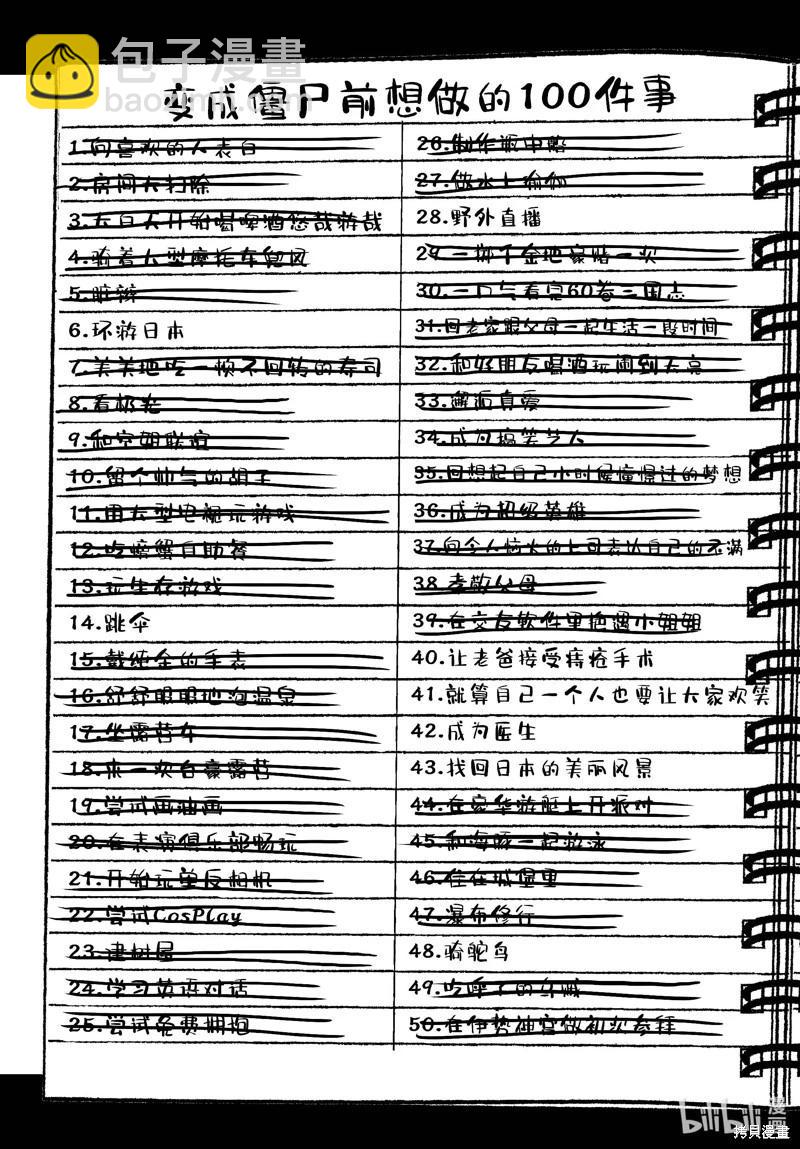 包子漫畫
baozimh.com
变成僵尸前想做的100件事
1.向喜欢的人表白
2.房间大扫除
3.大白天开始喝啤酒悠哉游哉
4.骑着大型摩托车兜风
5.脏辫
6.环游日本
7.美美地吃一顿不回转的寿司
8.看极光
9.和空姐联谊
10.留个帅气的胡子
11.用大型电视玩游戏
12.吃螃蟹自助餐
13.玩生存游戏
14.跳伞
15.戴纯金的手表
16.舒舒服服地泡温泉
17.坐露营车
18.来一次自豪露营
19.尝试画油画
20.在表演俱乐部畅玩
21.开始玩单反相机
22.尝试CosPlay
23.建树屋
24.学习英语对话
25.尝试免费拥抱
26.制作瓶中船
27.做水上瑜伽
28.野外直播
29.一掷千金地豪赌一次
30.一口气看完60卷三国志
31.回老家跟父母一起生活一段时间
32.和好朋友喝酒玩闹到天亮
33.邂逅真爱
34.成为搞笑艺人
35.回想起自己小时候憧憬过的梦想
36.成为超级英雄
37.向令人恼火的上司表达自己的不满
38.孝敬父母
39.在交友软件里艳遇小姐姐
40.让老爸接受痔疮手术
41.就算自己一个人也要让大家欢笑
42.成为医生
43.找回日本的美丽风景
44.在豪华游艇上开派对
45.和海豚一起游泳
46.住在城堡里
47.瀑布修行
48.骑鸵鸟
49.吃
50.在伊势神宫做初次参拜
bilibili漫画
拷贝漫畫